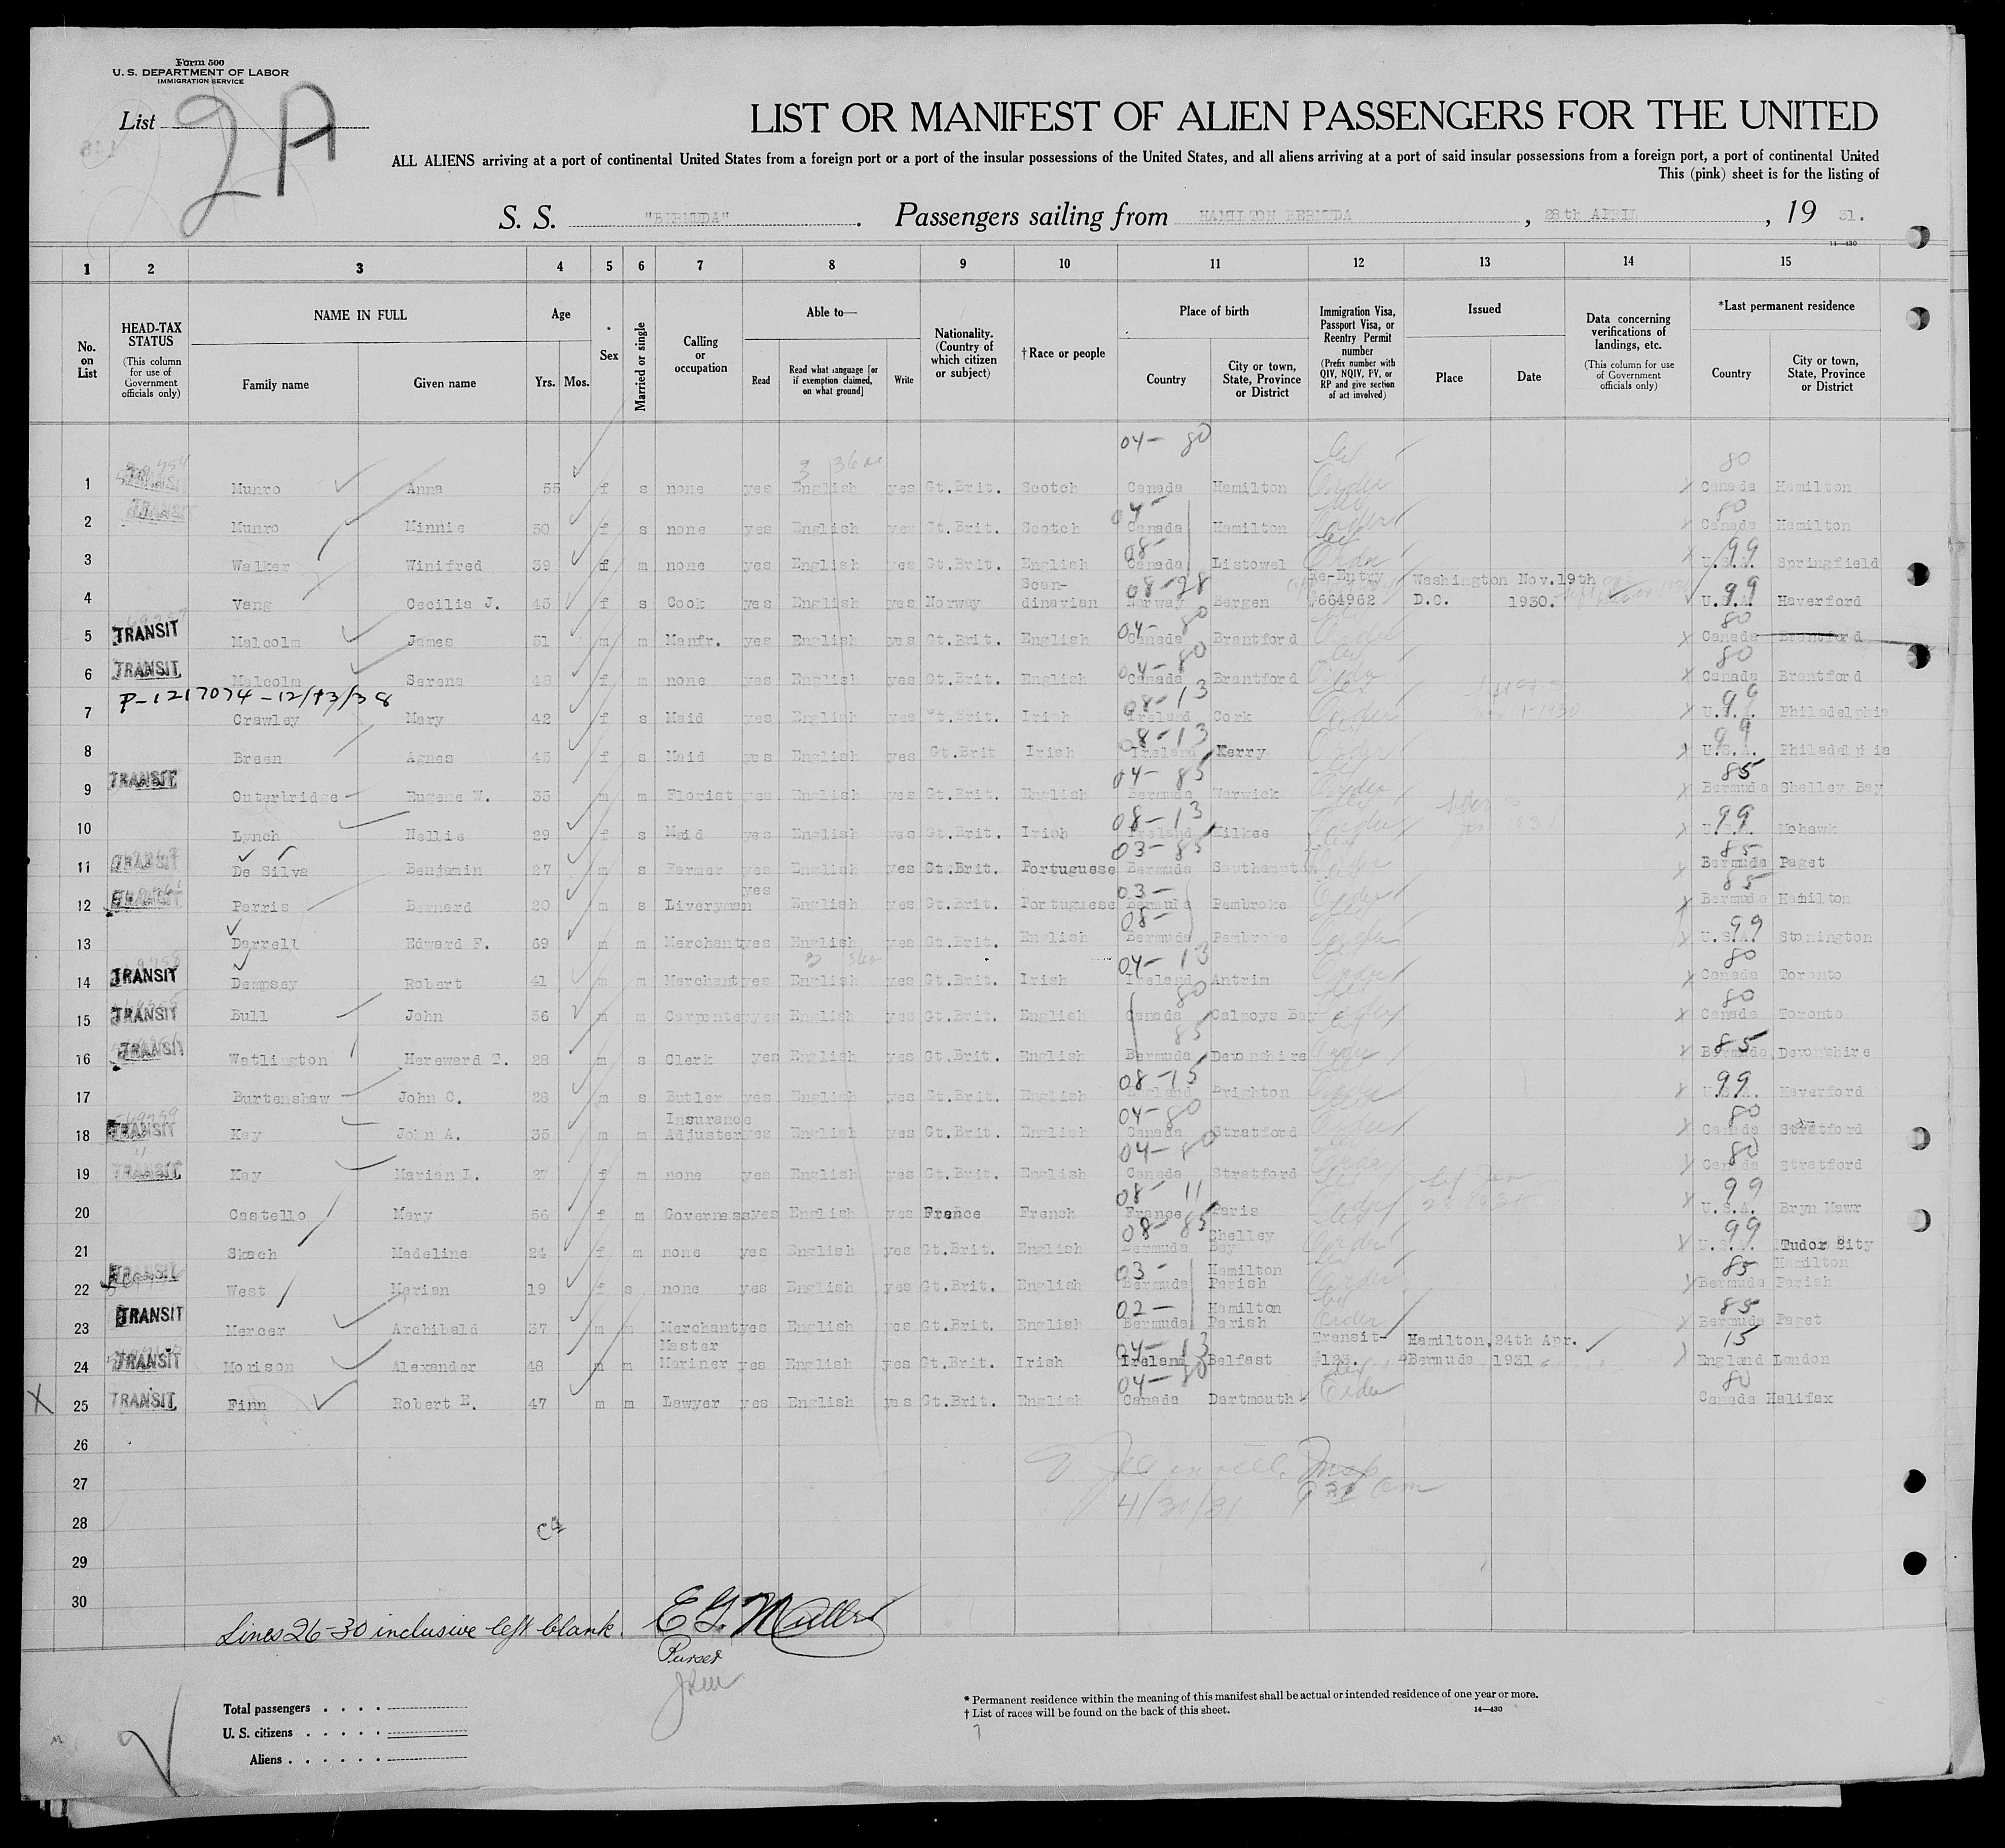 Form 500
U. S. DEPARTMENT OF LABOR
IMMIGRATION SERVICE
List 2A
LIST OR MANIFEST OF ALIEN PASSENGERS FOR THE UNITED
ALL ALIENS arriving at a port of continental United States from a foreign port or a port of the insular possessions of the United States, and all aliens arriving at a port of said insular possessions from a foreign port, a port of continental United
This (pink) sheet is for the listing of
S. S. "BERMUDA". Passengers sailing from HAMILTON BERMUDA, 28th APRIL, 19 31.
14—430
1 2 3 4 5 6 7 8 9 10 11 12 13 14 15
No. on List
HEAD-TAX STATUS (This column for use of Government officials only)
NAME IN FULL
Family name Given name
Age
Yrs. Mos.
Sex
Married or single
Calling or occupation
Able to—
Read
Read what language [or if exemption claimed, on what ground]
Write
Nationality. (Country of which citizen or subject)
†Race or people
Place of birth
Country
City or town, State, Province or District
Immigration Visa, Passport Visa, or Reentry Permit number (Prefix number with QIV, NQIV, PV, or RP and give section of act involved)
Issued
Place Date
Data concerning verifications of landings, etc. (This column for use of Government officials only)
*Last permanent residence
Country
City or town, State, Province or District
04— 80
1 Munro Anna 55 f s none yes English yes Gt.Brit. Scotch Canada Hamilton Order 80 Canada Hamilton
2 TRANSIT Munro Minnie 50 f s none yes English yes Gt.Brit. Scotch 04— Canada Hamilton Order 80 Canada Hamilton
3 Walker Winifred 39 f m none yes English yes Gt.Brit. English 08— Canada Listowel Order 99 U.S.A. Springfield
4 Vang Cecilia J. 45 f s Cook yes English yes Norway Scandinavian 08—28 Norway Bergen Re-Entry #664962 Washington D.C. Nov.19th 1930. 99 U.S.A. Haverford
5 TRANSIT Malcolm James 51 m m Manfr. yes English yes Gt.Brit. English 04— 80 Canada Brantford Order 80 Canada Brantford
6 TRANSIT Malcolm Serena 48 f m none yes English yes Gt.Brit. English 04—80 Canada Brantford Order 80 Canada Brantford
P-1217074-12/13/38
7 Crawley Mary 42 f s Maid yes English yes Gt.Brit. Irish 08—13 Ireland Cork Order 99 U.S.A. Philadelphia
8 Breen Agnes 45 f s Maid yes English yes Gt.Brit Irish 08—13 Ireland Kerry Order 99 U.S.A. Philadelphia
9 TRANSIT Outerbridge Eugene W. 35 m m Florist yes English yes Gt.Brit. English 04— 85 Bermuda Warwick Order 85 Bermuda Shelley Bay
10 Lynch Nellie 29 f s Maid yes English yes Gt.Brit. Irish 08—13 Ireland Kilkee Order 99 U.S.A. Mohawk
11 TRANSIT De Silva Benjamin 27 m s Farmer yes English yes Gt.Brit. Portuguese 03—85 Bermuda Southampton Order 85 Bermuda Paget
12 TRANSIT Parris Bernard 20 m s Liveryman yes English yes Gt.Brit. Portuguese 03— Bermuda Pembroke Order 85 Bermuda Hamilton
13 Darrell Edward F. 69 m m Merchant yes English yes Gt.Brit. English 08— Bermuda Pembroke Order 99 U.S.A. Stonington
14 TRANSIT Dempsey Robert 41 m m Merchant yes English yes Gt.Brit. Irish 04—13 Ireland Antrim Order 80 Canada Toronto
15 TRANSIT Bull John 56 m m Carpenter yes English yes Gt.Brit. English 80 Canada Calnoys Bay Order 80 Canada Toronto
16 TRANSIT Watlington Hereward T. 28 m s Clerk yes English yes Gt.Brit. English 85 Bermuda Devonshire Order 85 Bermuda Devonshire
17 Burtenshaw John C. 28 m s Butler yes English yes Gt.Brit. English 08—15 England Brighton Order 99 U.S.A. Haverford
18 TRANSIT Kay John A. 35 m m Insurance Adjuster yes English yes Gt.Brit. English 04—80 Canada Stratford Order 80 Canada Stratford
19 TRANSIT Kay Marian L. 27 f m none yes English yes Gt.Brit. English 04—80 Canada Stratford Order 80 Canada Stratford
20 Costello Mary 56 f m Governess yes English yes France French 08— 11 France Paris Order 99 U.S.A. Bryn Mawr
21 Skech Madeline 24 f m none yes English yes Gt.Brit. English 08—85 Bermuda Shelley Bay Order 99 U.S.A. Tudor City
22 TRANSIT West Marian 19 f s none yes English yes Gt.Brit. English 03— Bermuda Hamilton Parish Order 85 Bermuda Hamilton Parish
23 TRANSIT Mercer Archibald 37 m m Merchant yes English yes Gt.Brit. English 02— Bermuda Hamilton Parish Order 85 Bermuda Paget
24 TRANSIT Morison Alexander 48 m m Master Mariner yes English yes Gt.Brit. Irish 04—13 Ireland Belfast Transit #123. Hamilton, Bermuda 24th Apr. 1931 15 England London
X 25 TRANSIT Finn Robert E. 47 m m Lawyer yes English yes Gt.Brit. English 04—80 Canada Dartmouth Order 80 Canada Halifax
26
27
4/30/31
28
29
30
Lines 26-30 inclusive left blank.
Purser
Total passengers
U. S. citizens
Aliens
* Permanent residence within the meaning of this manifest shall be actual or intended residence of one year or more.
† List of races will be found on the back of this sheet.
14—430